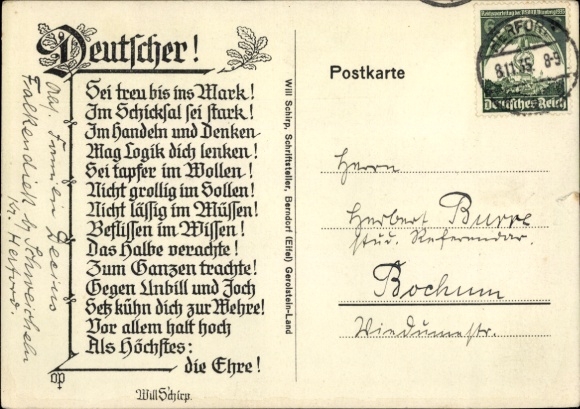 Deutscher!
Sei treu bis ins Mark!
Im Schicksal sei stark!
Im Handeln und Denken
Mag Logik dich lenken!
Sei tapfer im Wollen!
Nicht grollig im Sollen!
Nicht lässig im Müssen!
Beflissen im Wissen!
Das Halbe verachte!
Zum Ganzen trachte!
Gegen Unbill und Joch
Setz kühn dich zur Wehre!
Vor allem halt hoch
Als Höchstes:
die Ehre!
Will Schirp.
Abs. Familie Decius
Falkendiek b/ Schweicheln
Kr. Herford.
Will Schirp, Schriftsteller, Berndorf (Eifel) Gerolstein-Land
Postkarte
Reichsparteitag der NSDAP Nürnberg 1935
Deutsches Reich
HERFORD
8.11.35. 8-9
Herrn
Herbert Burre
stud. Referendar.
Bochum
Wiedumestr.